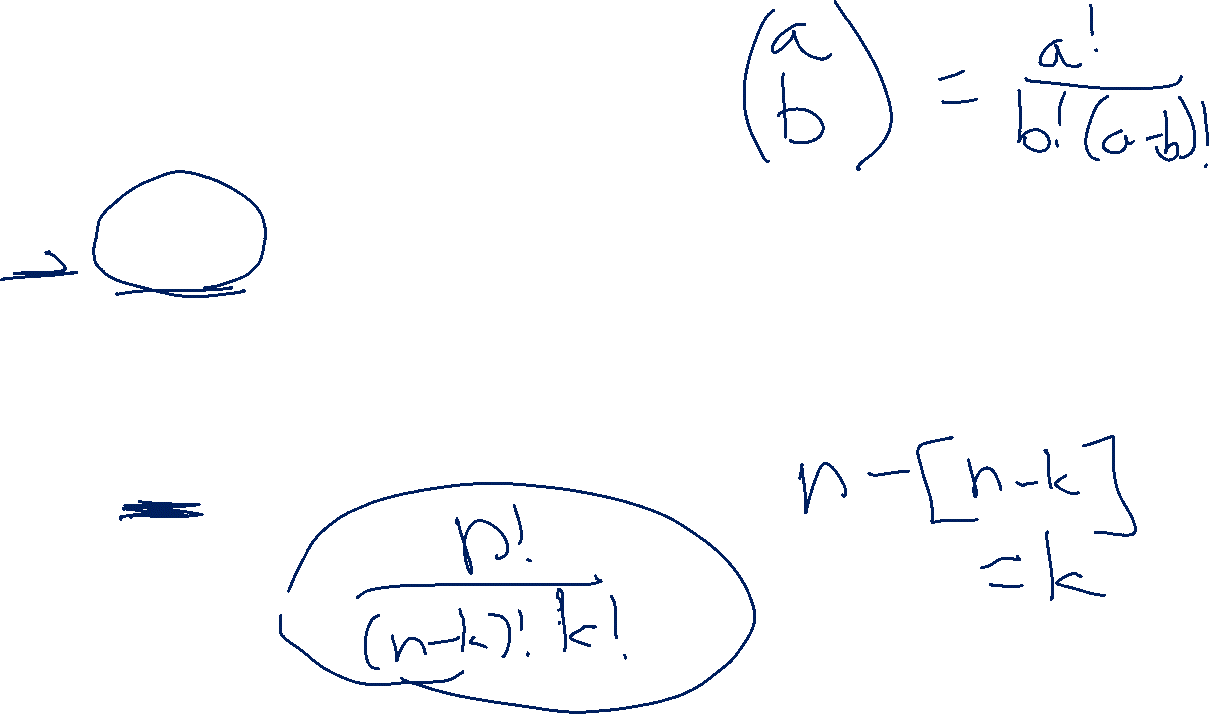 (a b) = a! / b! (a-b)!
→
= n! / (n-k)! k!
n - [n-k]
= k